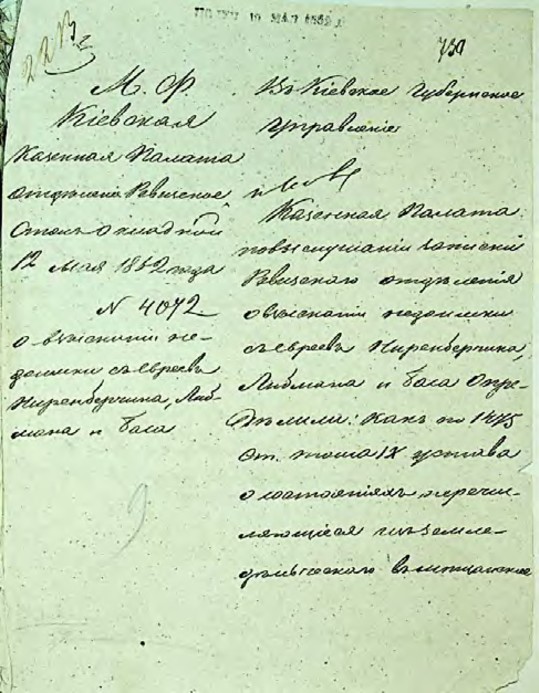 ПОЛУЧ 19 МАЯ 1852
223
730
М. Ф.
Кіевская
Казенная Палата
Отдѣленіе Ревизское
Столъ Окладной
12 Мая 1852 года
N 4072
о взысканіи не-
доимки съ евреевъ
Ниренберчика, Либ-
мана и Баса
Въ Кіевское Губернское
Управленіе
Казенная Палата
по выслушаніи записки
Ревизскаго отдѣленія
о взысканіи недоимки
съ евреевъ Ниренберчика,
Либмана и Баса Опре-
дѣлили: Какъ по 1475
ст. тома IX устава
о состояніяхъ, перечис-
ляющіеся изъ земле-
дѣльческаго въ мѣщанское